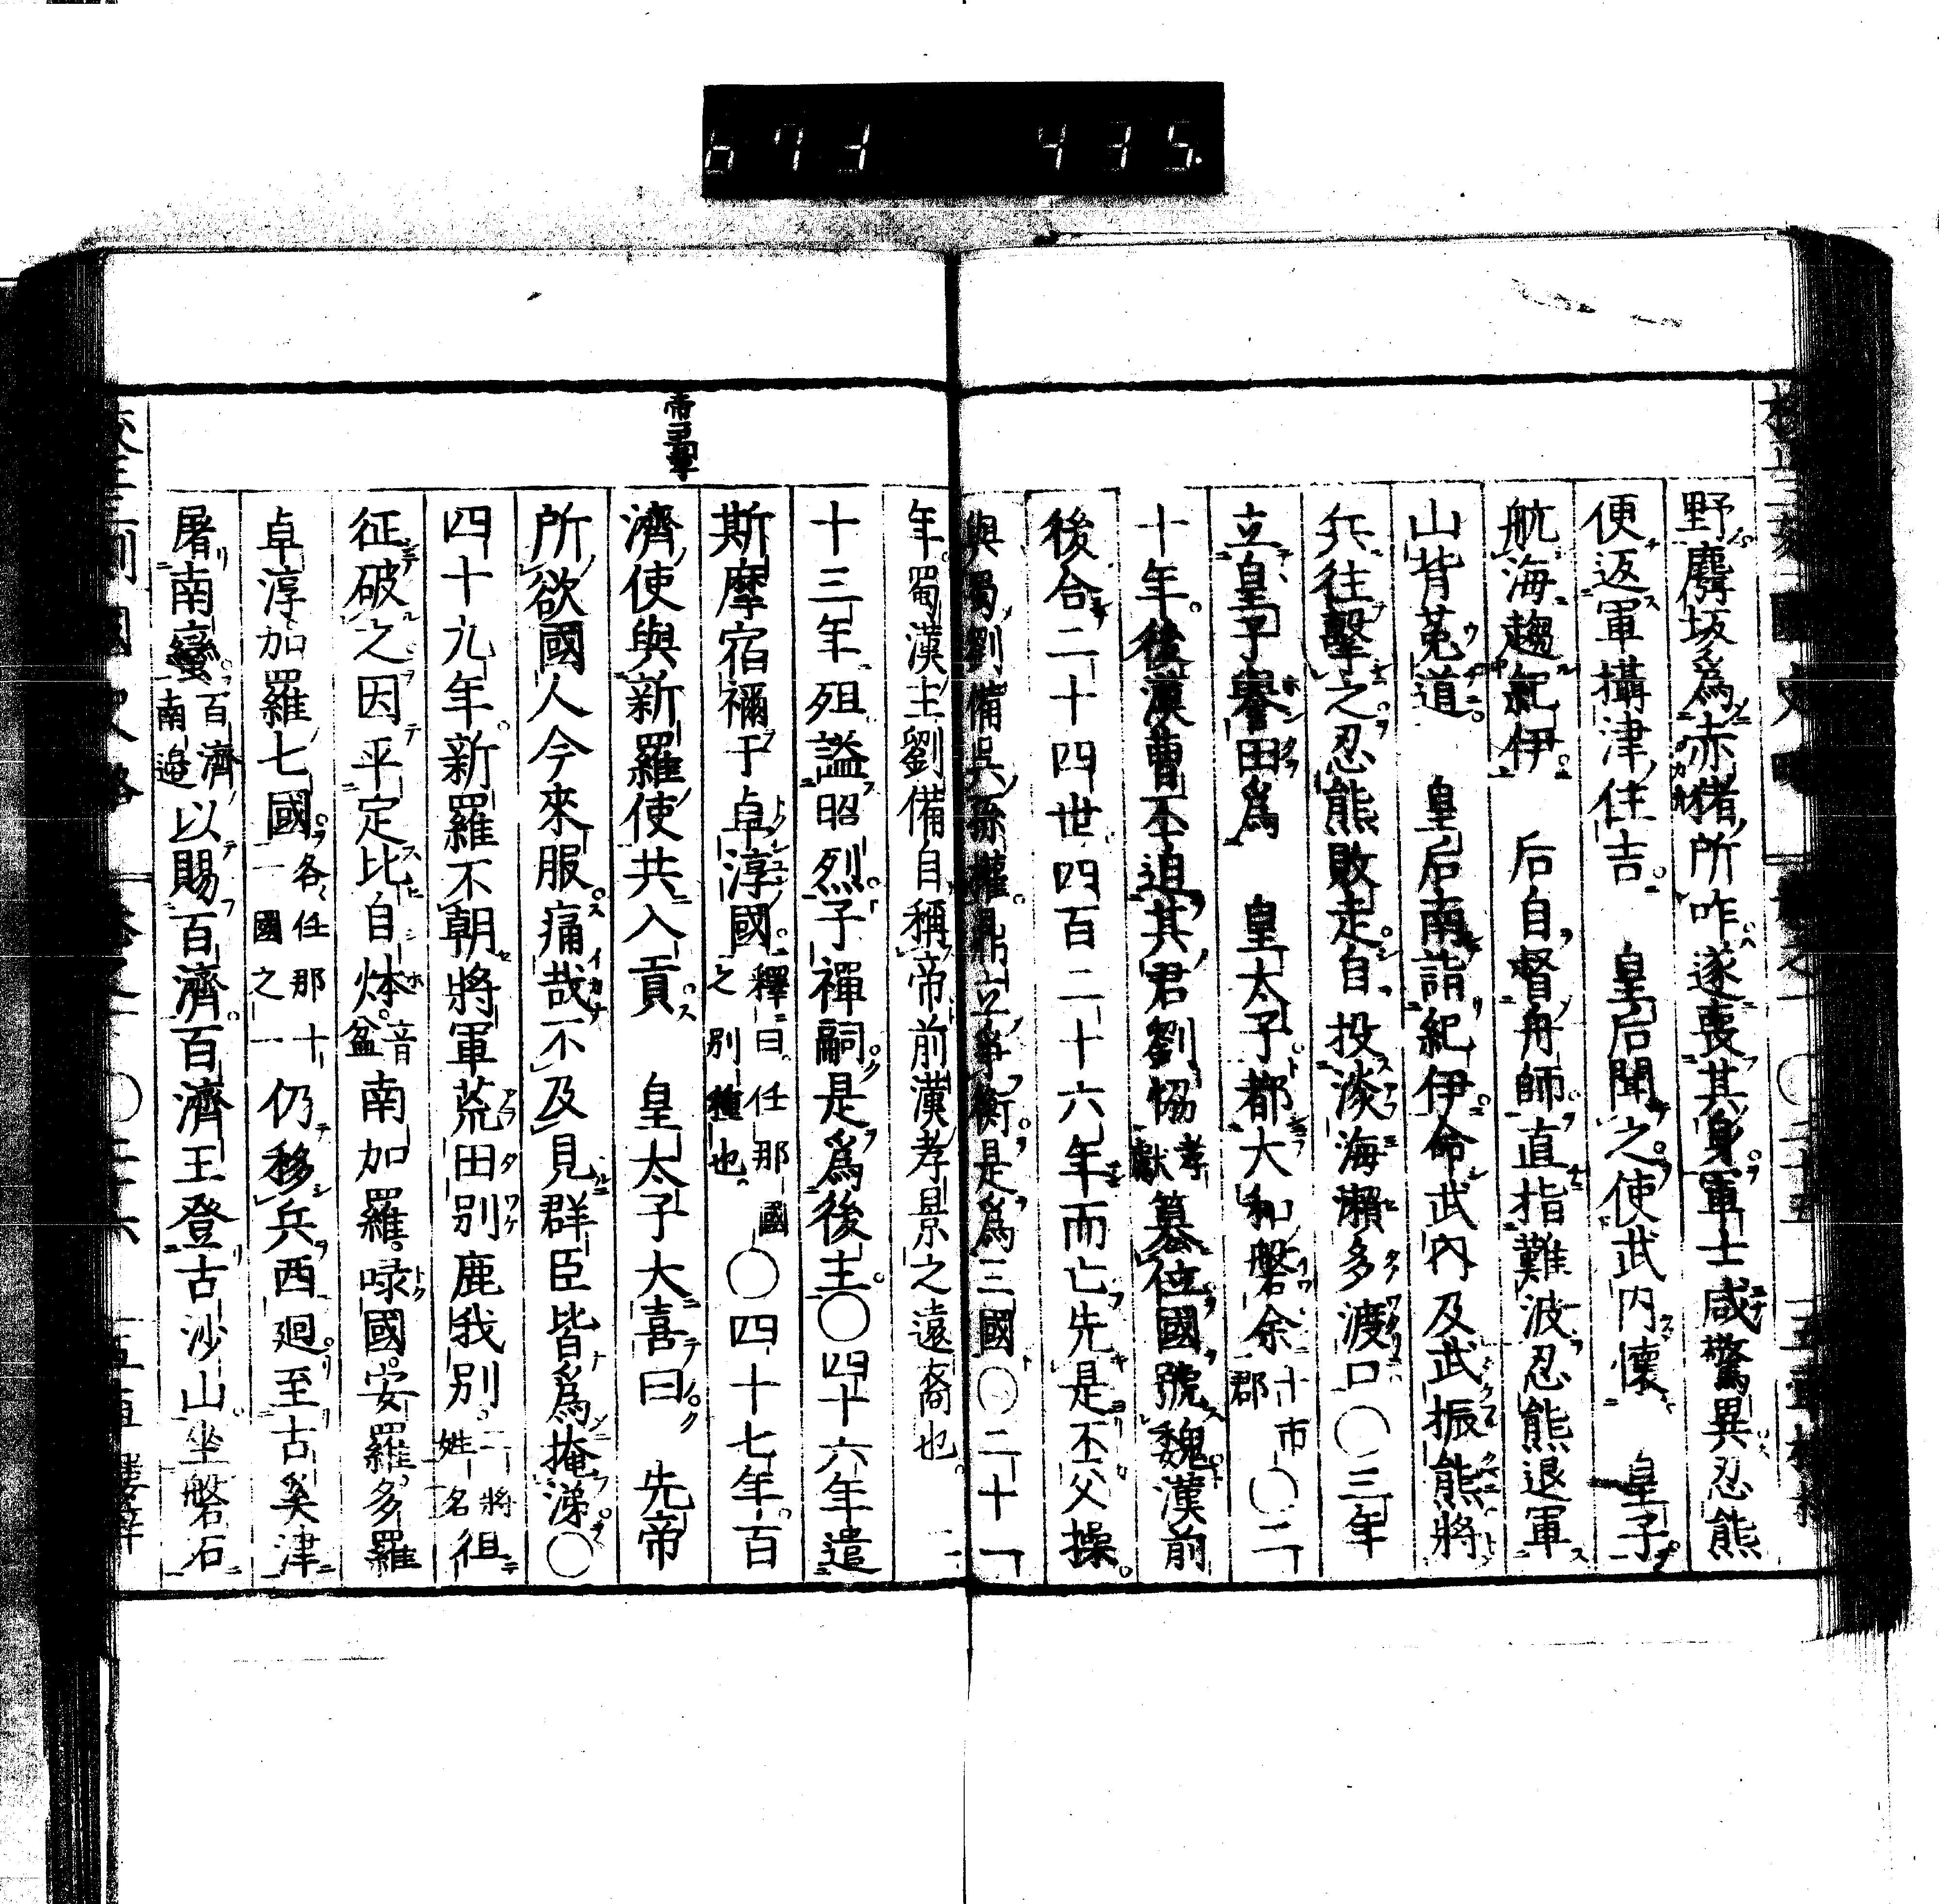 673 435.
野麛坂爲赤猪所咋遂喪其身軍士咸驚異忍熊
便返軍攝津住吉 皇后聞之使武内懷 皇子
航海趨紀伊 后自督舟師直指難波忍熊退軍
山背菟道 皇后南詣紀伊命武内及武振熊將
兵往擊之忍熊敗走自投淡海瀨多渡口〇三年
立皇子譽田爲 皇太子都大和磐余十市郡〇二
十年後漢曹丕迫其君劉協孝獻簒位國號魏漢前
後合二十四世四百二十六年而亡先是丕父操
與蜀劉備吳孫權鼎立爭衡是爲三國〇二十一
年蜀漢主劉備自稱帝前漢孝景之遠裔也二
十三年殂謚昭烈子禪嗣是爲後主〇四十六年遣
帝
斯摩宿禰于卓淳國釋曰任那國之別種也〇四十七年百
濟使與新羅使共入貢 皇太子大喜曰 先帝
所欲國人今來服痛哉不及見群臣皆爲掩涕〇
四十九年新羅不朝將軍荒田別鹿我別二將姓名徂
征破之因平定比自㶱音盆南加羅㖨國安羅多羅
卓淳加羅七國各任那十國之一仍移兵西廻至古奚津
屠南蠻百濟南邊以賜百濟百濟王登古沙山坐磐石